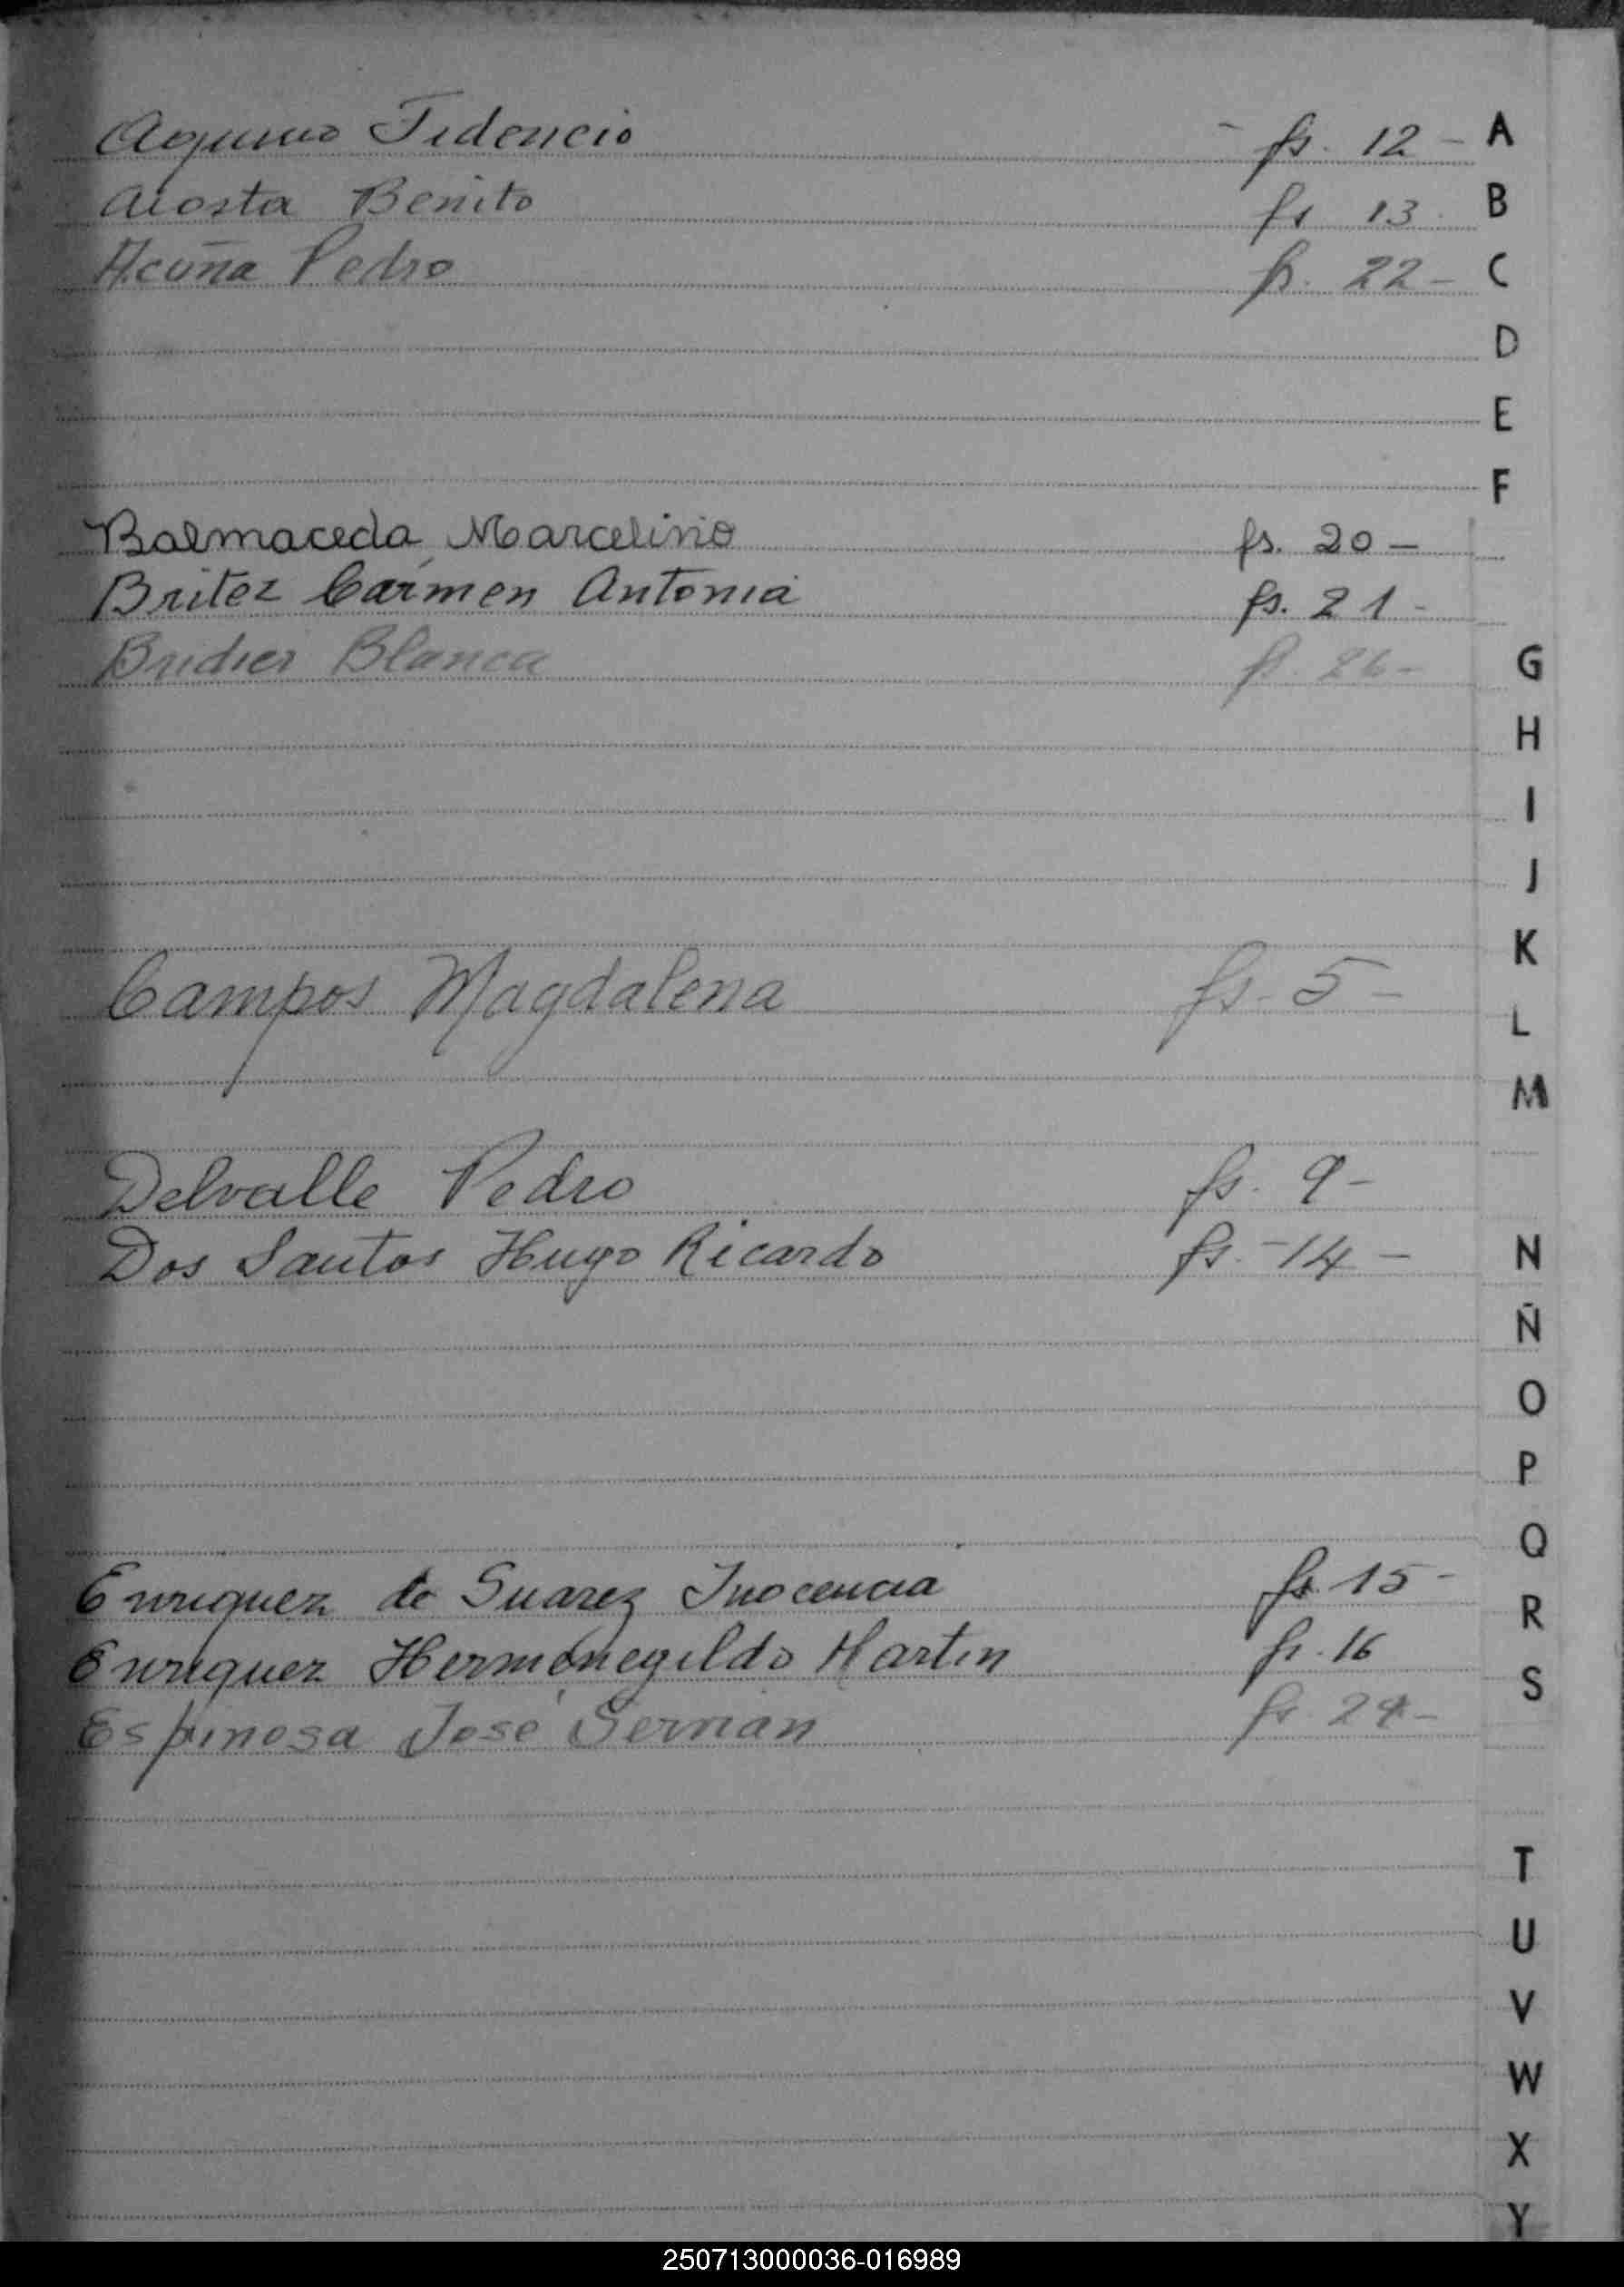 Aquino Fidencio - fs. 12 - A
Acosta Benito fs 13 B
Acuña Pedro fs. 22 - C
D
E
F
Balmaceda Marcelino fs. 20 -
Britez Carmen Antonia fs. 21 -
Bridier Blanca fs. 26 - G
H
I
J
K
Campos Magdalena fs. 5 -
L
M
Delvalle Pedro fs. 9 -
Dos Santos Hugo Ricardo fs. - 14 - N
Ñ
O
P
Q
Enriquez de Suarez Inocencia fs. 15 - R
Enriquez Hermenegildo Martin fs. 16 S
Espinosa José fs.
T
U
V
W
X
Y
250713000036-016989